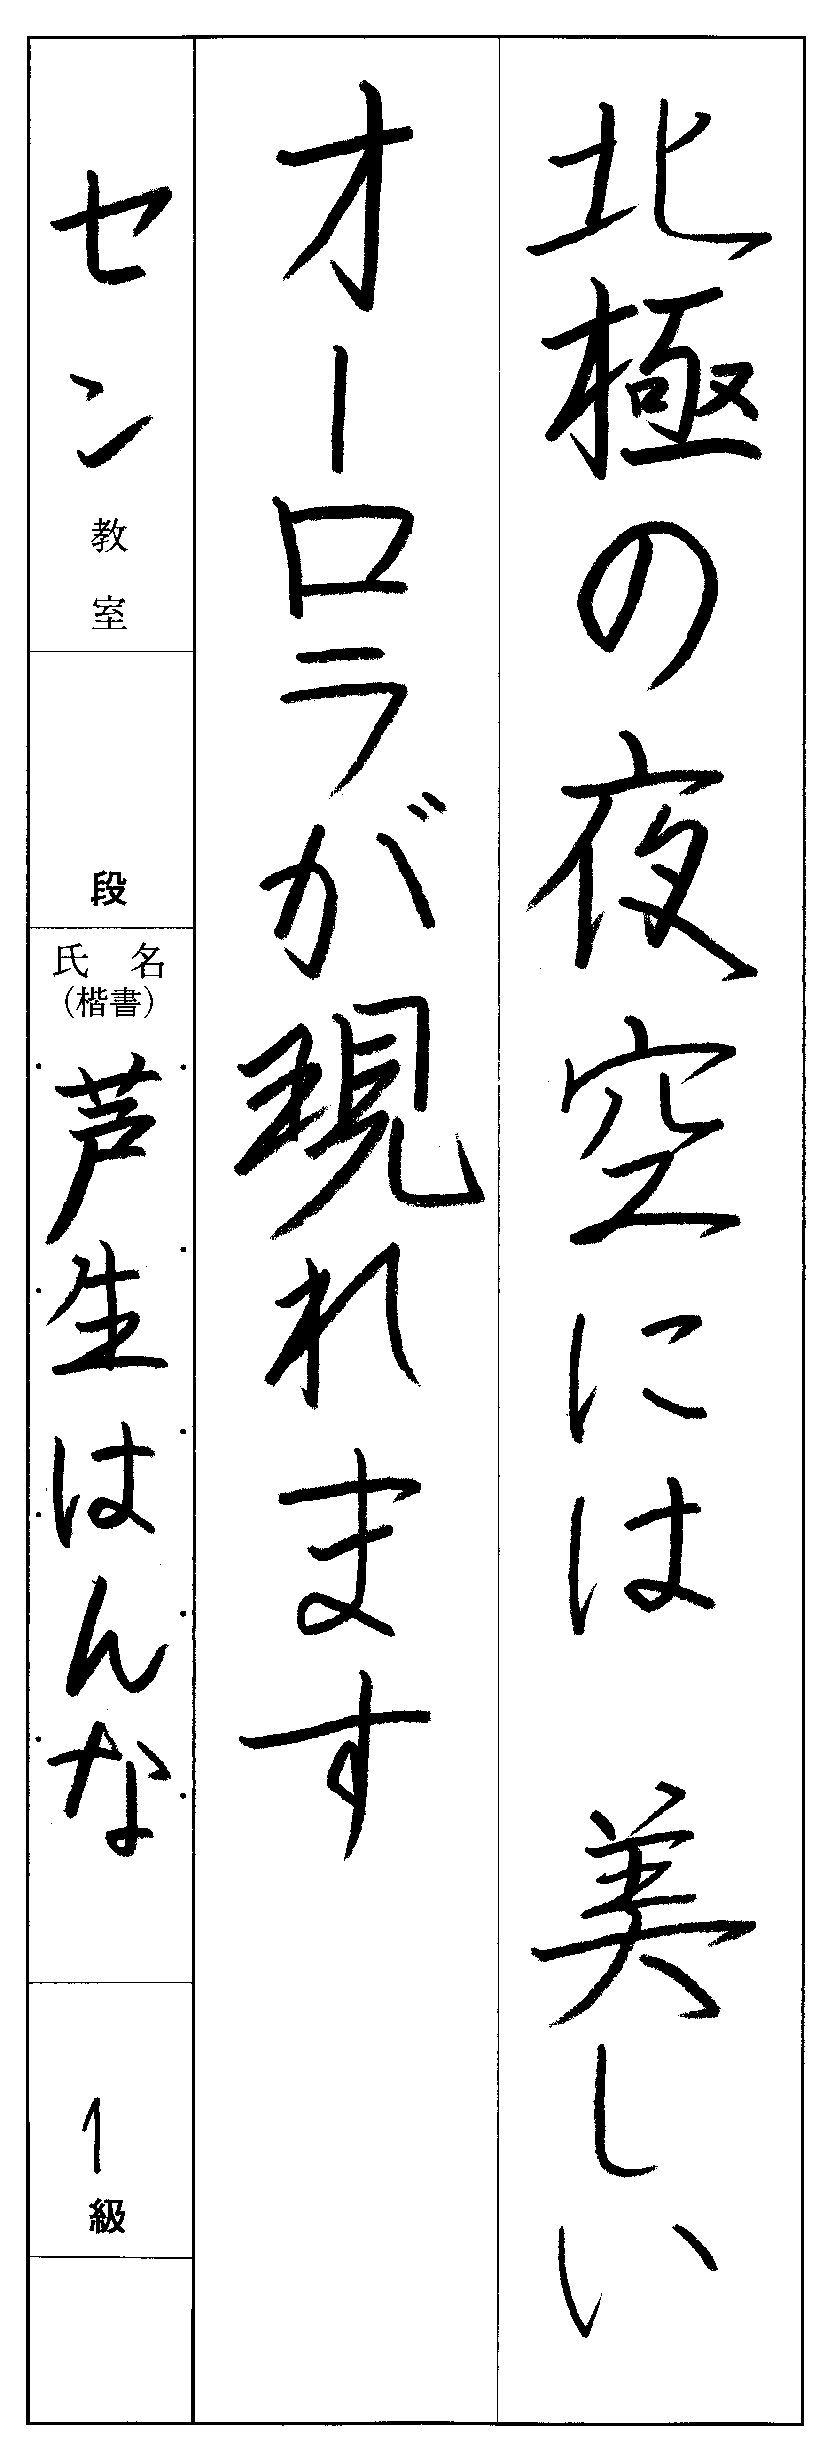 北極の夜空には　美しい
オーロラが現れます
セン教室
段
氏名
（楷書）
芦生はんな
1級